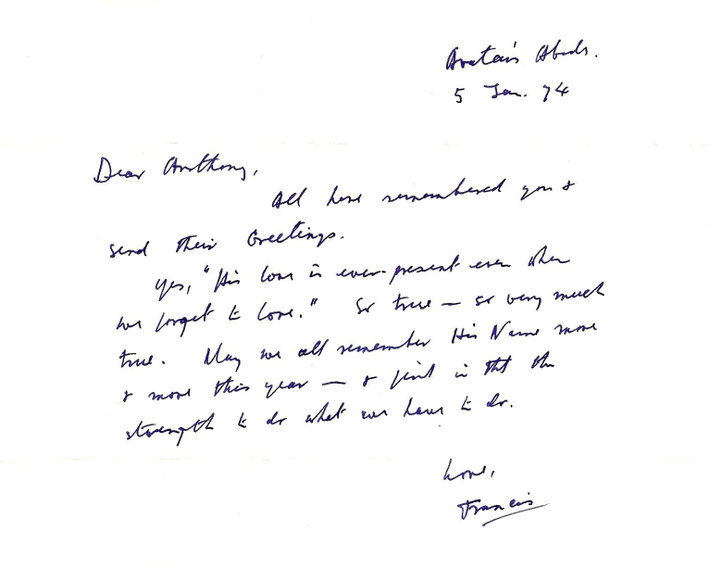 Avatar's Abode.
5 Jan. 74
Dear Anthony,
All here remembered you &
send their Greetings.
Yes, "His love is ever-present even when
we forget to love." So true — so very much
true. May we all remember His Name more
& more this year — & find in that the
strength to do what we have to do.
Love,
Francis